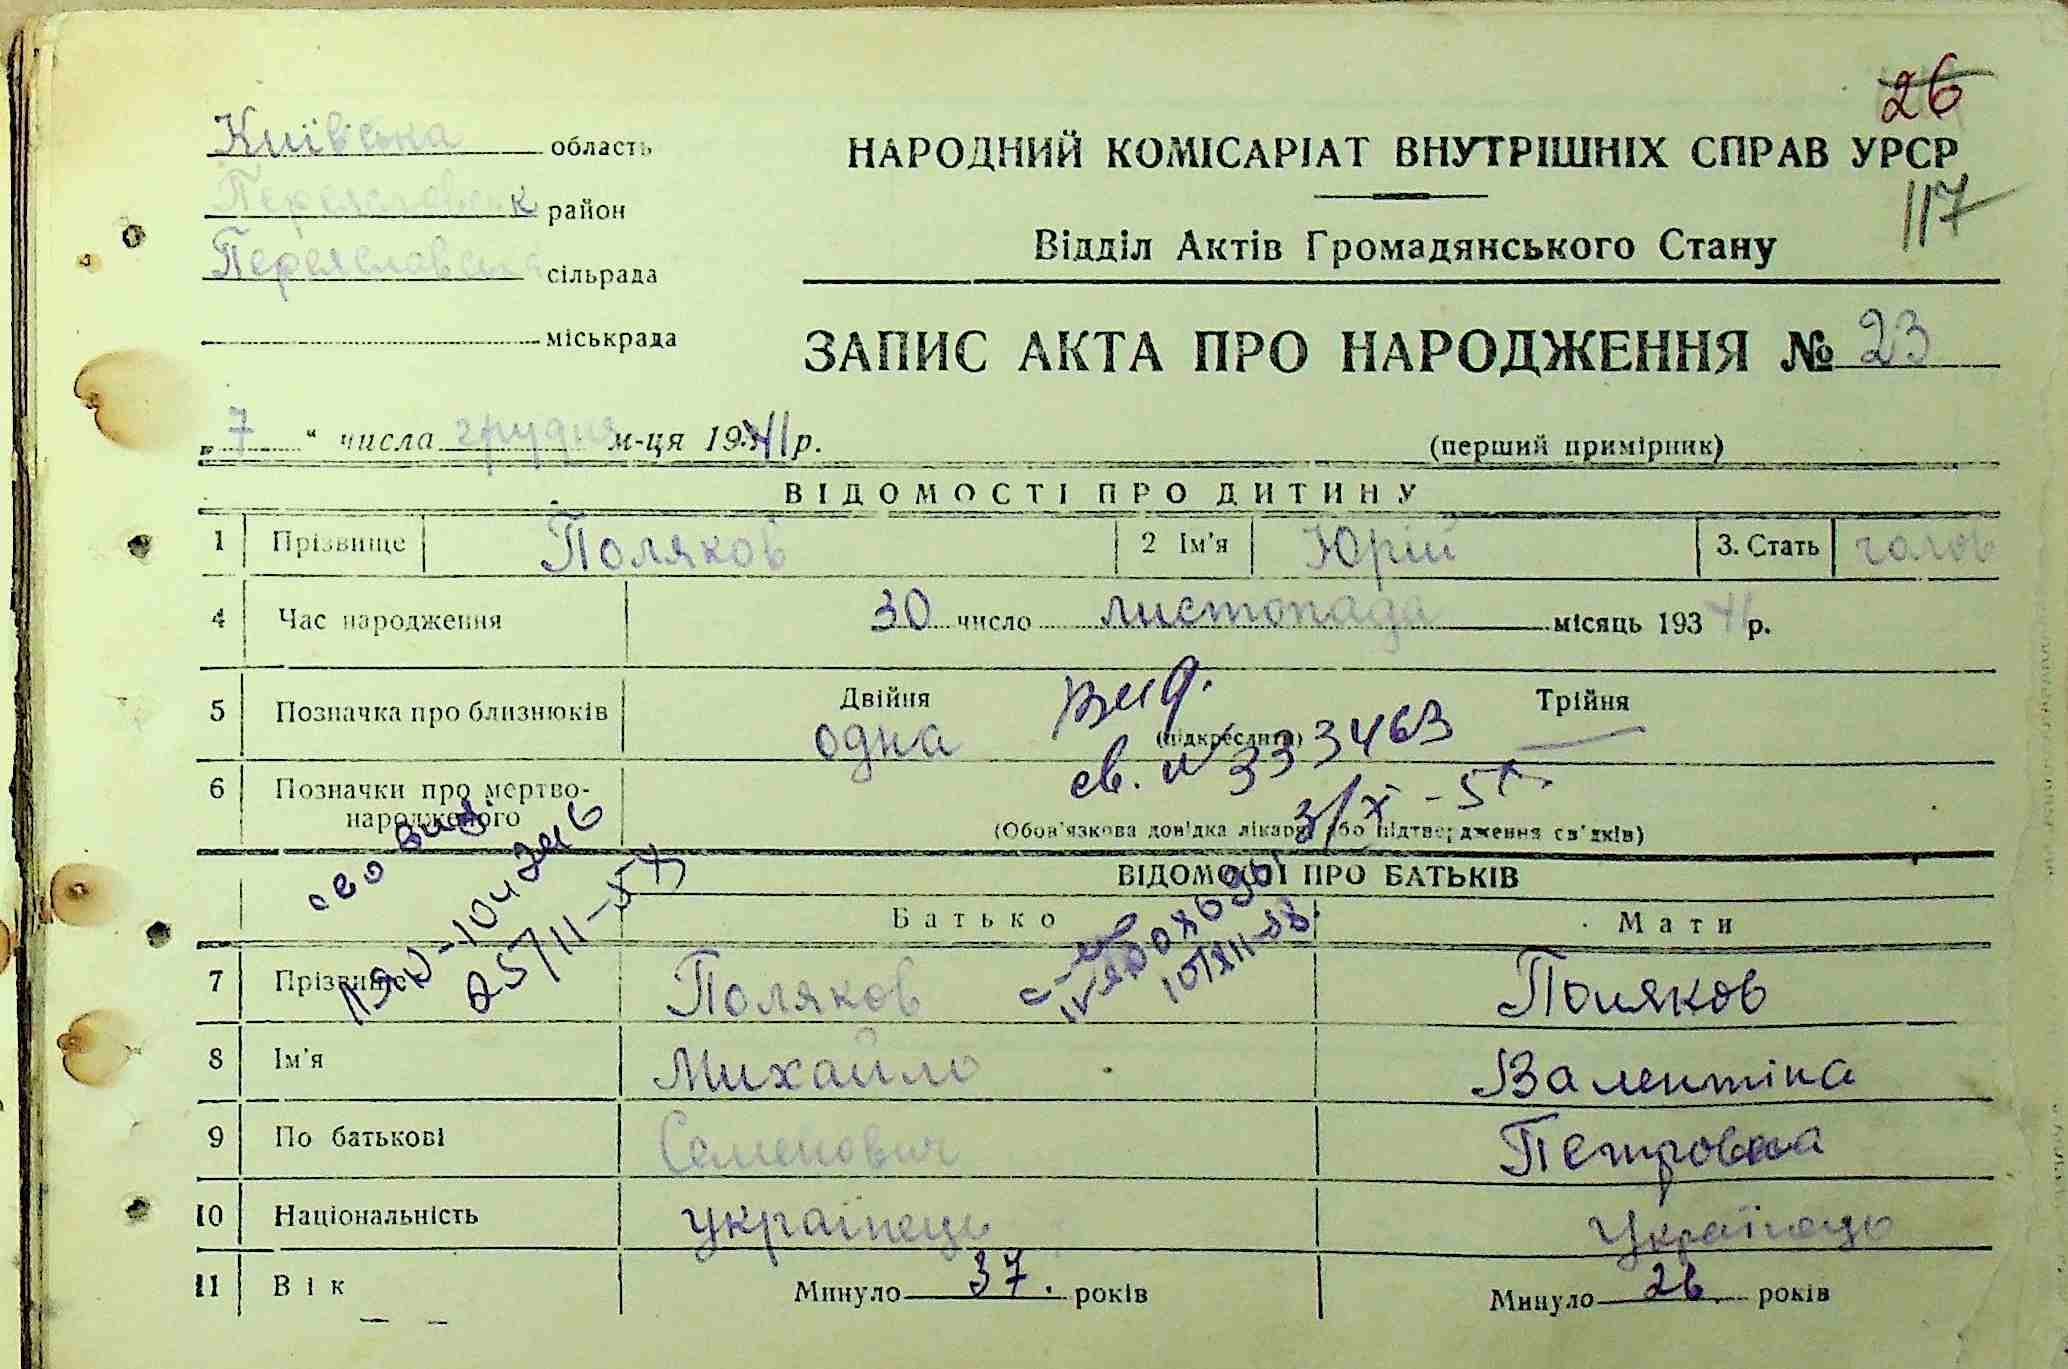 26
Київська область
Переяславськ район
Переяславська сільрада
міськрада
НАРОДНИЙ КОМІСАРІАТ ВНУТРІШНІХ СПРАВ УРСР
117
Відділ Актів Громадянського Стану
ЗАПИС АКТА ПРО НАРОДЖЕННЯ № 23
„7“ числа грудня м-ця 1941 р.
(перший примірник)
ВІДОМОСТІ ПРО ДИТИНУ
1 Прізвище Поляков 2 Ім'я Юрій 3. Стать голов
4 Час народження 30 число листопада місяць 193 41 р.
5 Позначка про близнюків Двійня одна (підкреслити) Трійня
вид.
св. № 333463
3/X - 5
6 Позначки про мертвонародженого
(Обов'язкова довідка лікаря або підтвердження свідків)
ВІДОМОСТІ ПРО БАТЬКІВ
Батько Мати
25/II-57
10/XII-58.
7 Прізвище Поляков Поляков
8 Ім'я Михайло Валентіна
9 По батькові Семенович Петровна
10 Національність українець Українець
11 Вік Минуло 37. років Минуло 26. років